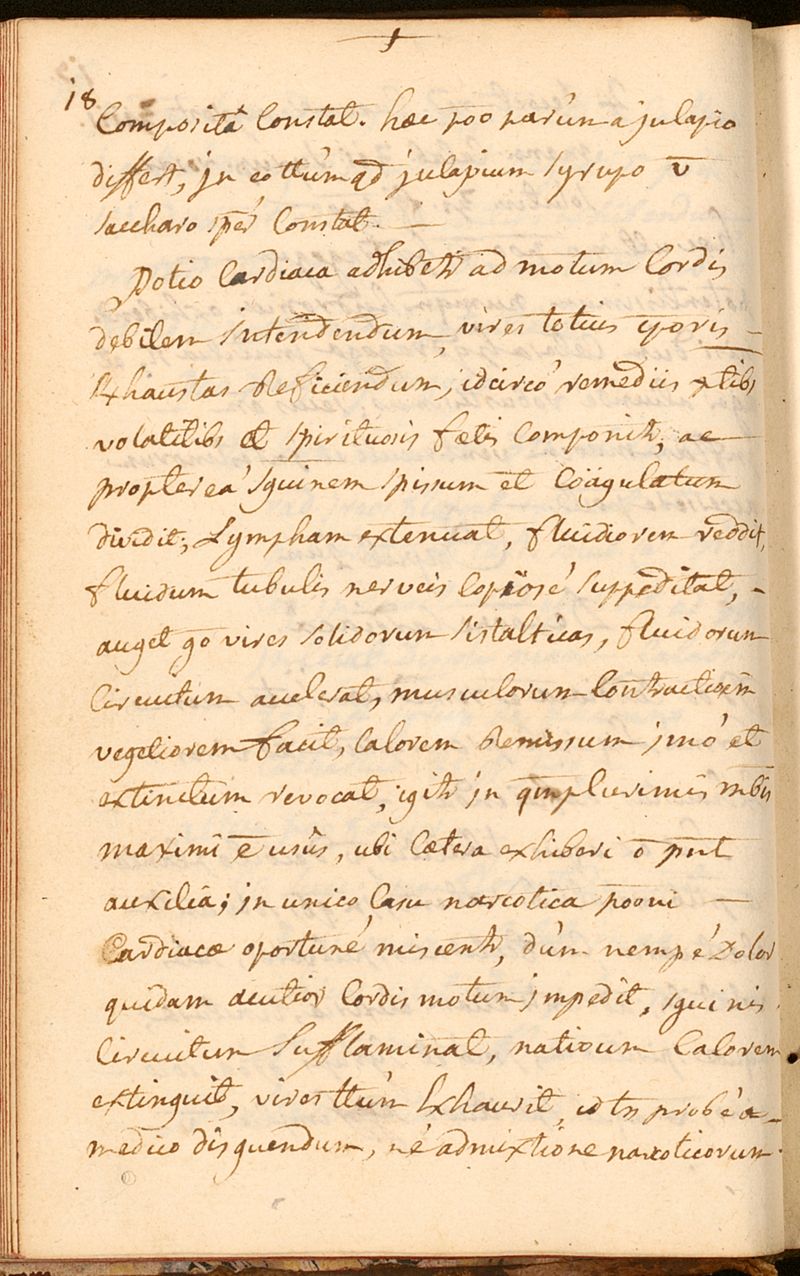 18
Composità Constat. hæc poo parùm a julapio
differt, jn eo ttùm qd julapium Syrupo v̄
Saccharo spèr Constat. —
Potio Cardiaca adhibetr ad motum Cordis
debilem Intendendum, vires totius cporis —
Exhaustas Reficiendum, idcircò remediis
volatilibs et spirituosis fætis Componitr, ac
propterea sguinem spissum et Coagulatum
dividit; Lympham extenuat, fluidiorem reddit,
fluidum tubulis nerveis Copiosé Suppeditat, -
auget go vires solidorum Sistalticas, fluidorum
Circuitum accelerat, musculorum Contractioēm
vegetiorem facit, Calorem Remissum jmò et
extinctum revocat, igitr jn qmplurimis mbis
maximi ē usûs, ubi Cætera exhiberi ō pnt
auxilia; jn unico Casu narcotica pooni —
Cardiacæ oportunè miscentr, dùm nempè Dolor
quidam acutior Cordis motum jmpedit, sguinis
Circuitum Sufflaminat, nativum Calorem
extinguit, vires ttùm Exhaurit, id tn probè a -
medico disquendum, nè admixtione narcoticorum